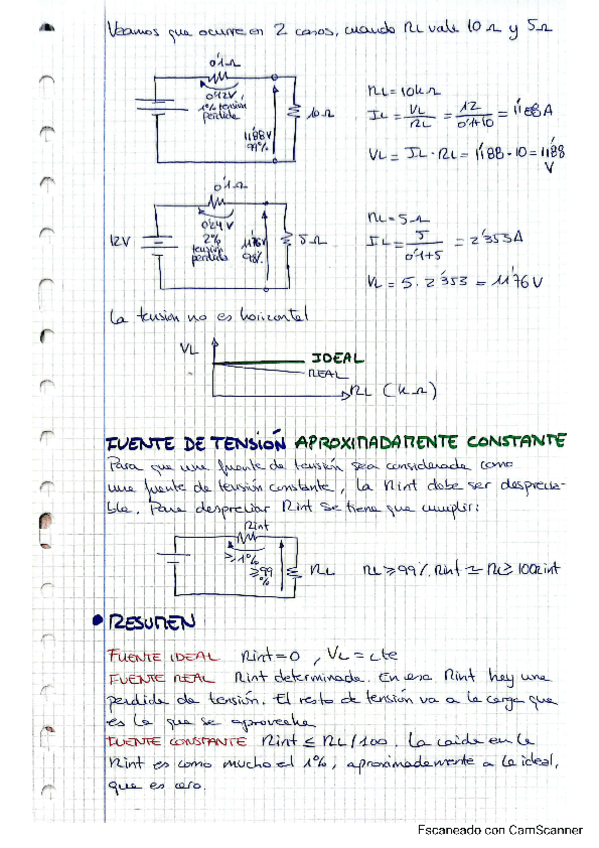 Veamos que ocurre en 2 casos, cuando RL vale 10Ω y 5Ω
0'1Ω
0'12V
1% tensión
perdida
11'88V
99%
10Ω
RL = 10kΩ
IL = VL/RL = 12/0'1+10 = 1'188A
VL = IL · RL = 1'188 · 10 = 11'88
V
0'1Ω
12V
0'24V
2%
tensión
perdida
11'76V
98%
5Ω
RL = 5Ω
IL = 5/0'1+5 = 2'353A
VL = 5 · 2'353 = 11'76V
La tension no es horizontal
VL
IDEAL
REAL
RL (kΩ)
FUENTE DE TENSIÓN APROXIMADAMENTE CONSTANTE
Para que una fuente de tensión sea considerada como
una fuente de tensión constante, la Rint debe ser desprecia-
ble. Para despreciar Rint se tiene que cumplir:
Rint
≥1%
≥99
%
RL
RL ≥ 99% Rint ≃ RL ≥ 100Rint
• RESUMEN
FUENTE IDEAL Rint = 0 , VL = cte
FUENTE REAL Rint determinada. En esa Rint hay una
perdida de tensión. El resto de tensión va a la carga que
es la que se aprovecha
FUENTE CONSTANTE Rint ≤ RL/100. La caida en la
Rint es como mucho el 1%, aproximadamente a la ideal,
que es cero.
Escaneado con CamScanner